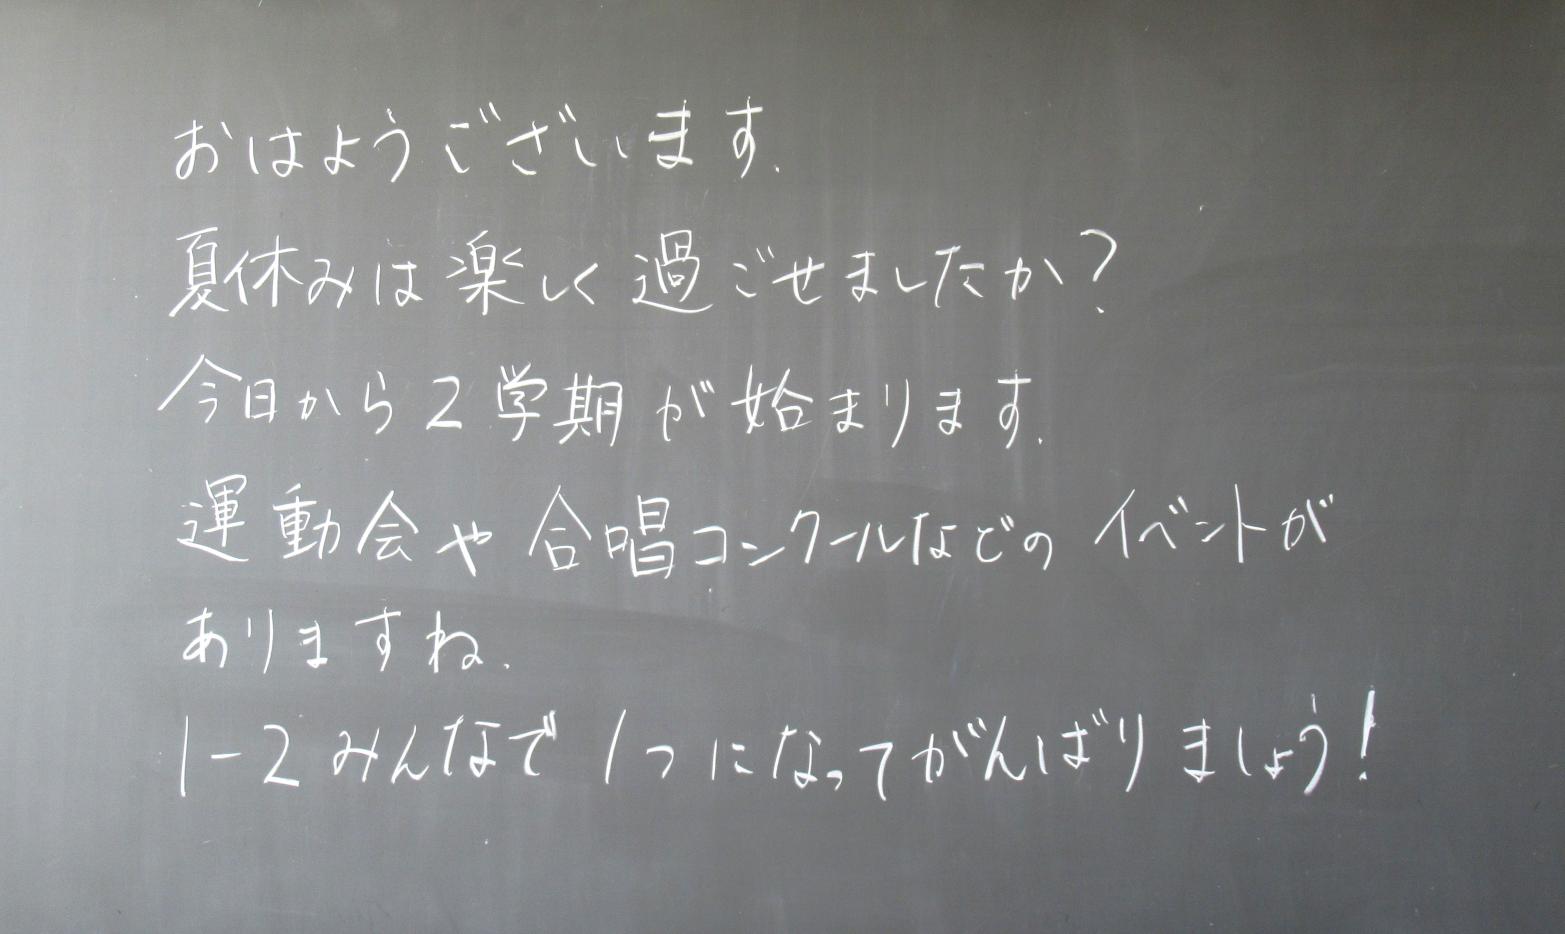 おはようございます.
夏休みは楽しく過ごせましたか?
今日から2学期が始まります.
運動会や合唱コンクールなどのイベントが
ありますね.
1-2みんなで1つになってがんばりましょう!